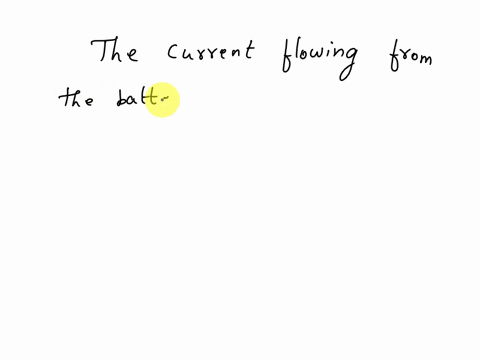 The current flowing from
the batt